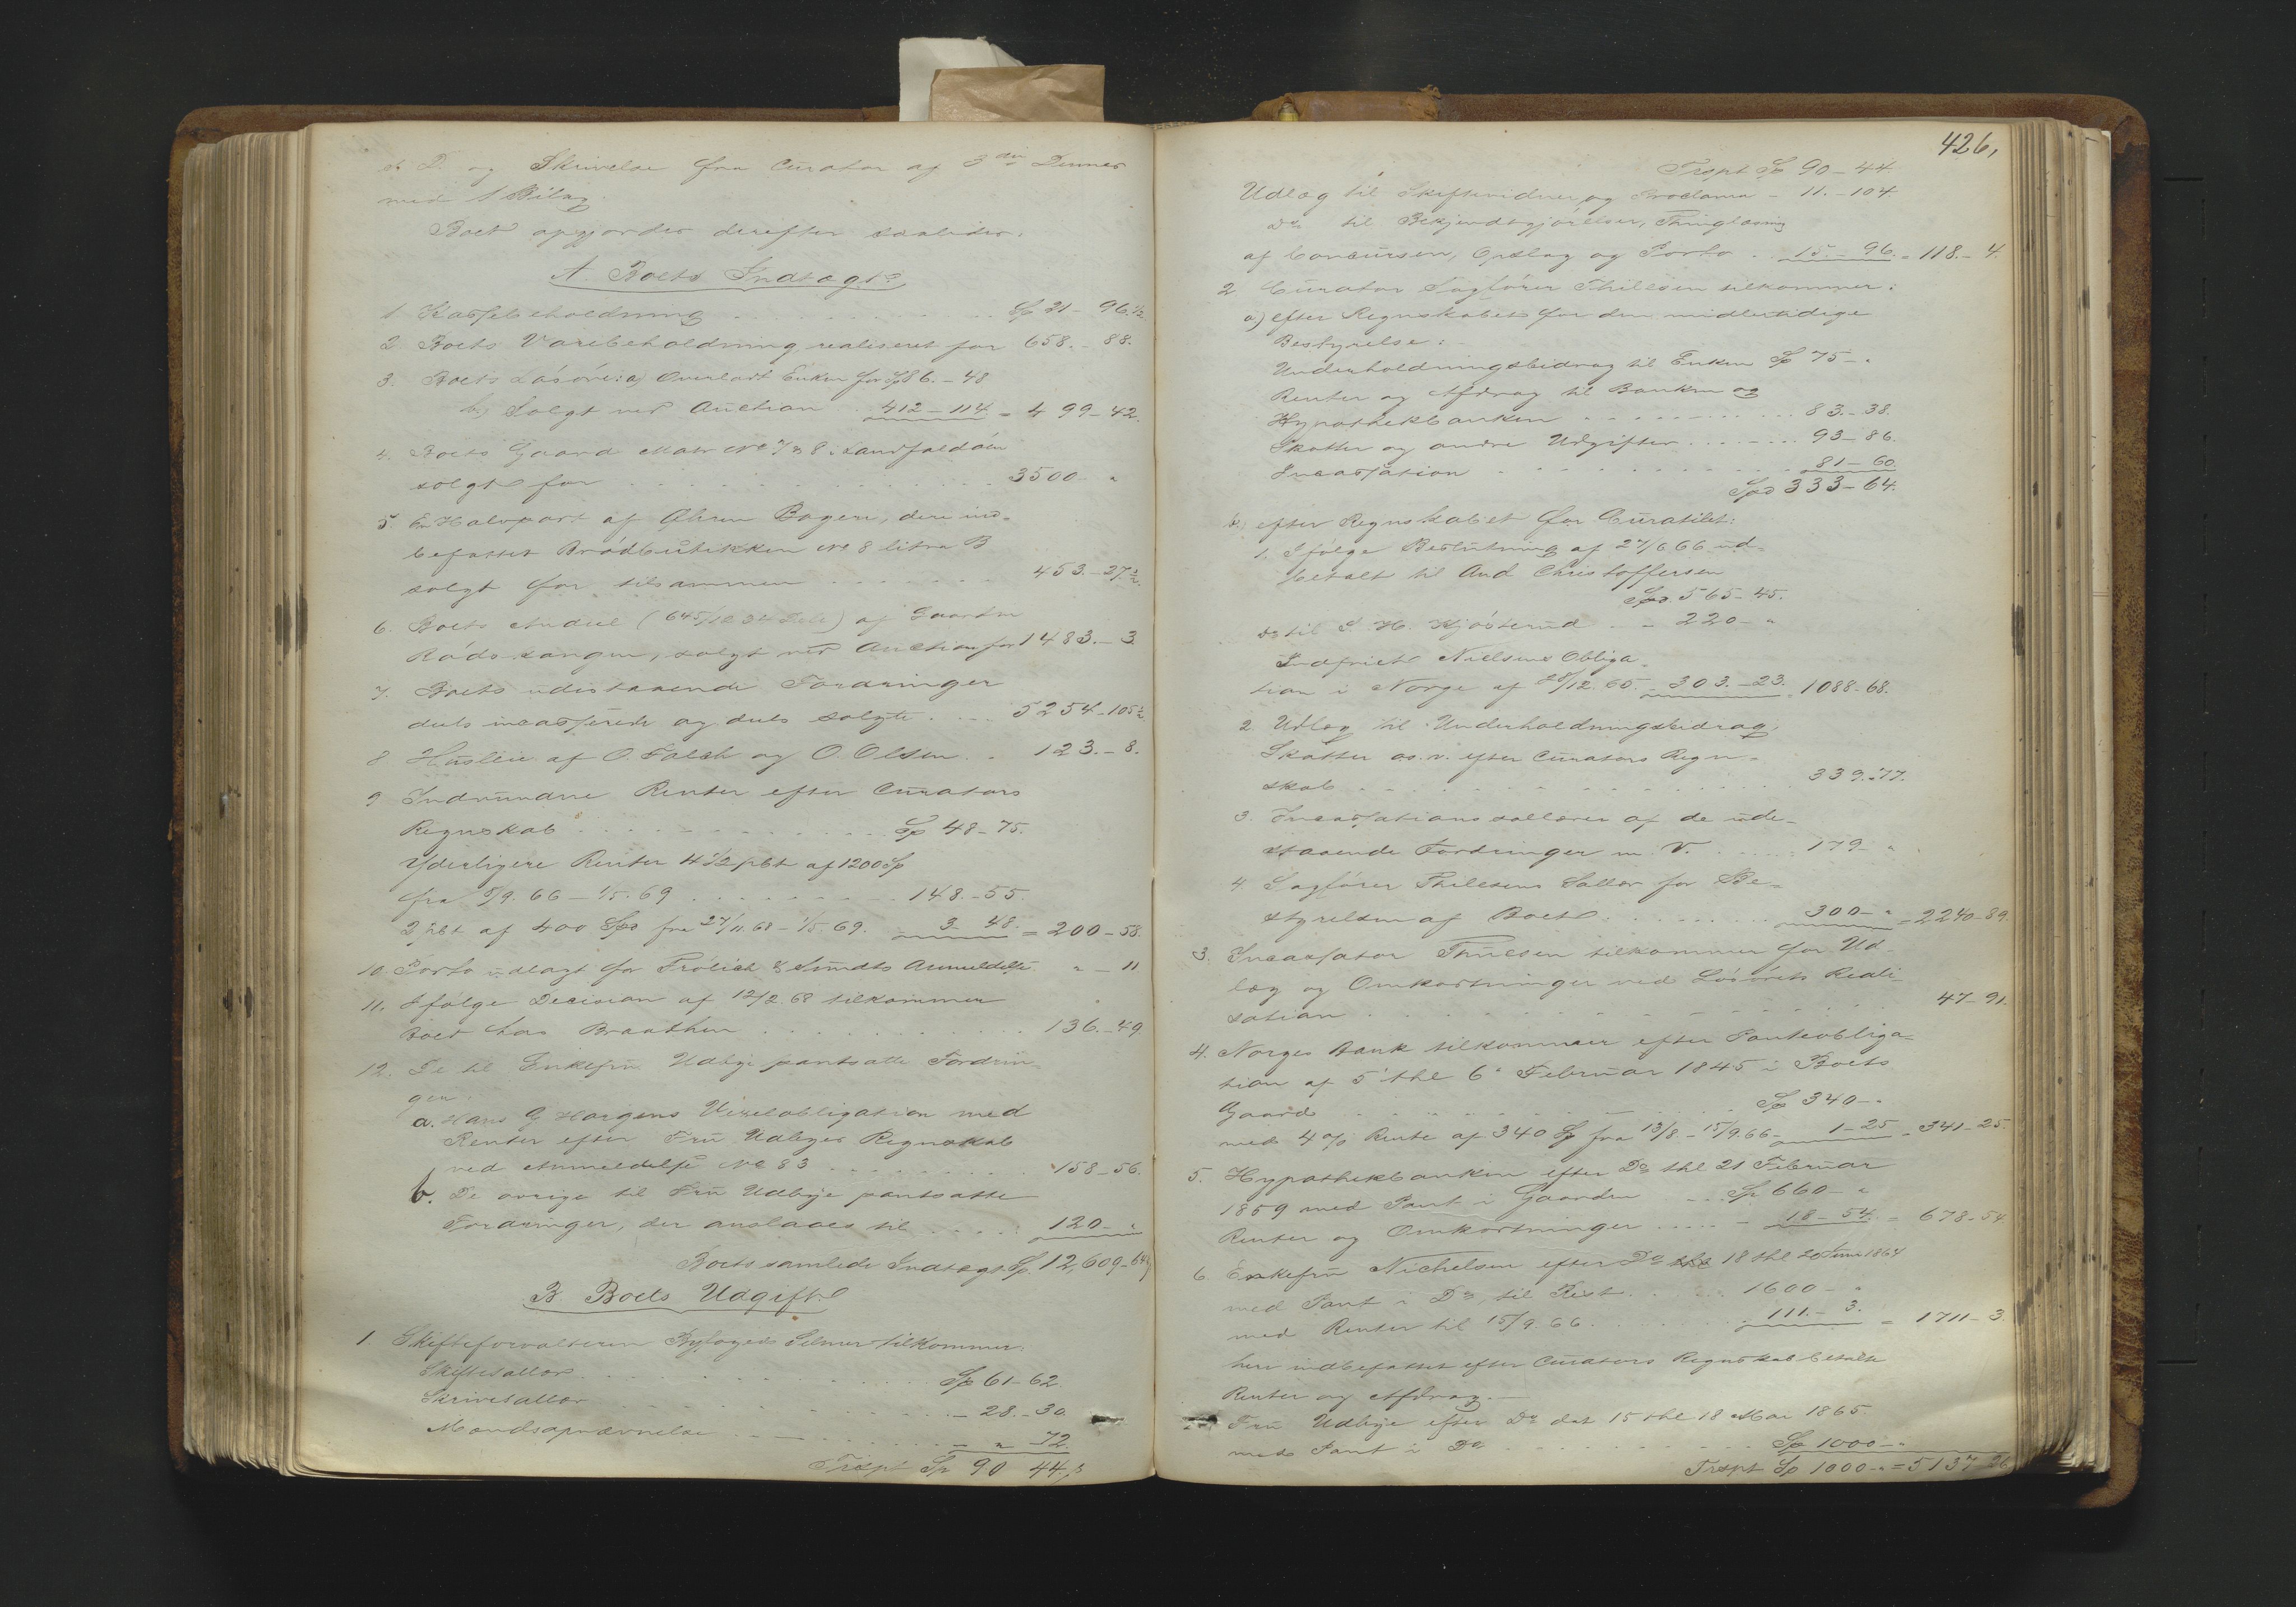 og Skrivelse fra Curator af 3die Dennes
med 1 Bilag.
Boet opgjordes derefter saaledes:
A Boets Indtægt
1 Kassebeholdning . . . Sp 21 - 96 1/2
2. Boets Varebeholdning realiseret for 658. - 88.
3. Boets Løsøre: a) Overladt Enken for Sp 86. - 48
b) Solgt ved Auction . 412 - 114 = 499 - 42.
4. Boets Gaard Matr No 7 & 8 i Landfaldøen
solgt for . . . 3500 - "
5. En Halvpart af Øhren Bageri, deri ind-
befattet Brødbutikken No 8 litra B
solgt for tilsammen . . . 453. - 27 1/2.
6. Boets Andeel ( ) af Gaarden
Rødskangen, solgt ved Auction for 1483. - 3
7. Boets udistaaende Fordringer
dels incasserede og dels solgte . . . 5254 - 105 1/2
8 Huslleie af O. Falch og O. Olsen . . 123. - 8.
9 Indvundne Renter efter Curators
Regnskab . . . Sp 48 - 75.
Yderligere Renter 4 1/2 pCt af 1200 Sp
fra 5/9. 66 - 1/5. 69 . . . 148. - 55.
2 pCt af 400 Spd fra 27/11. 68 - 1/5. 69. - 3 - 48. = 200 - 58.
10. Porto udlagt for Frølich & Sundts Anmeldelse " - 11
11. Ifølge Decision af 12/2 68 tilkommer
Boet hos Braathen . . . 136. - 49
12. De til Enkefru Udbye pantsatte Fordrin-
ger:
a. Hans G Horgens Vexelobligation med
Renter efter Fru Udbyes Regnskab
ved Anmeldelse No 83 . . . 158 - 56.
b. De øvrige til Fru Udbye pantsatte
Fordringer, der anslaaes til . . . 120 - "
Boets samlede Indtægt Sp. 12,609 - 64 1/2
B. Boets Udgift
1. Skifteforvalteren Byfoged Selmer tilkommer:
Skiftesallær . . . Sp 61 - 62.
Skrivesallær . . . - 28. - 30.
Mandsopnævnelse . . . - " - 72.
Trspt Sp 90 44. ß
426,
Trspt Sp 90 - 44
Udlæg til Skiftevidner og Proclama - 11. - 104.
Do til Bekjendtgjørelser, Thinglæsning
af Concursen, Opslag og Porto . . 15. - 96. = 118. - 4.
2 Curator Sagfører Thilesen tilkommer:
a) efter Regnskabet for den midlertidige
Bestyrelse:
Underholdningsbidrag til Enken Sp 75 - "
Renter og Afdrag til Banken og
Hypothekbanken . . . 83. - 38.
Skatter og andre Udgifter . . . 93 - 86.
Incassation . . . 81 - 60.
Spd 333 - 64.
b.) efter Regnskabet for Curatilet:
1. Ifølge Beslutning af 27/6 66 ud-
betalt til And Christoffersen
Spd. 565 - 45.
Do til S. H. Kjøsterud . . - 220 - "
Indfriet Nielsens Obliga-
tion i Norge af 28/12. 65. - 303. - 23. 1088 - 68.
2 Udlæg til Underholdningsbidrag,
Skatter os. v. efter Curators Regn-
skab . . . 339. - 77.
3. Incassationssallærer af de ude-
staaende Fordringer m. V. . . . 179 - "
4. Sagfører Thilesens Sallær for Be-
styrelsen af Boet . . . 300 - " = 2240 - 89.
3. Incassator Thuesen tilkommer for Ud-
læg og Omkostninger ved Løsørets Reali-
sation . . . 47 - 91.
4. Norges Bank tilkommer efter Panteobliga-
tion af 5' thl 6' Februar 1845 i Boets
Gaard . . . Sp 340 - "
med 4 % Rente af 340 Sp fra 13/8. - 15/9. 66 - 1 - 25 = 341 - 25.
5. Hypothekbanken efter Do thl 21 Februar
1859 med Pant i Gaarden . . . Sp 660 - "
Renter og Omkostninger . . . - 18 - 54. = 678 - 54
6. Enkefru Nichelsen efter Do 18 thl 20 Juni 1864
med Pant i Do, til Rest . . . 1600 - "
med Renter til 15/9. 66 . . . 111. - 3. = 1711 - 3.
heri indbefattet efter Curators Regnskab betalte
Renter og Afdrag. -
Fru Udbye efter Do dat 15 thl 18 Mai 1865.
med Pant i Do . . . Sp 1000 - "
Trspt Sp 1000 - " = 5137 - 26